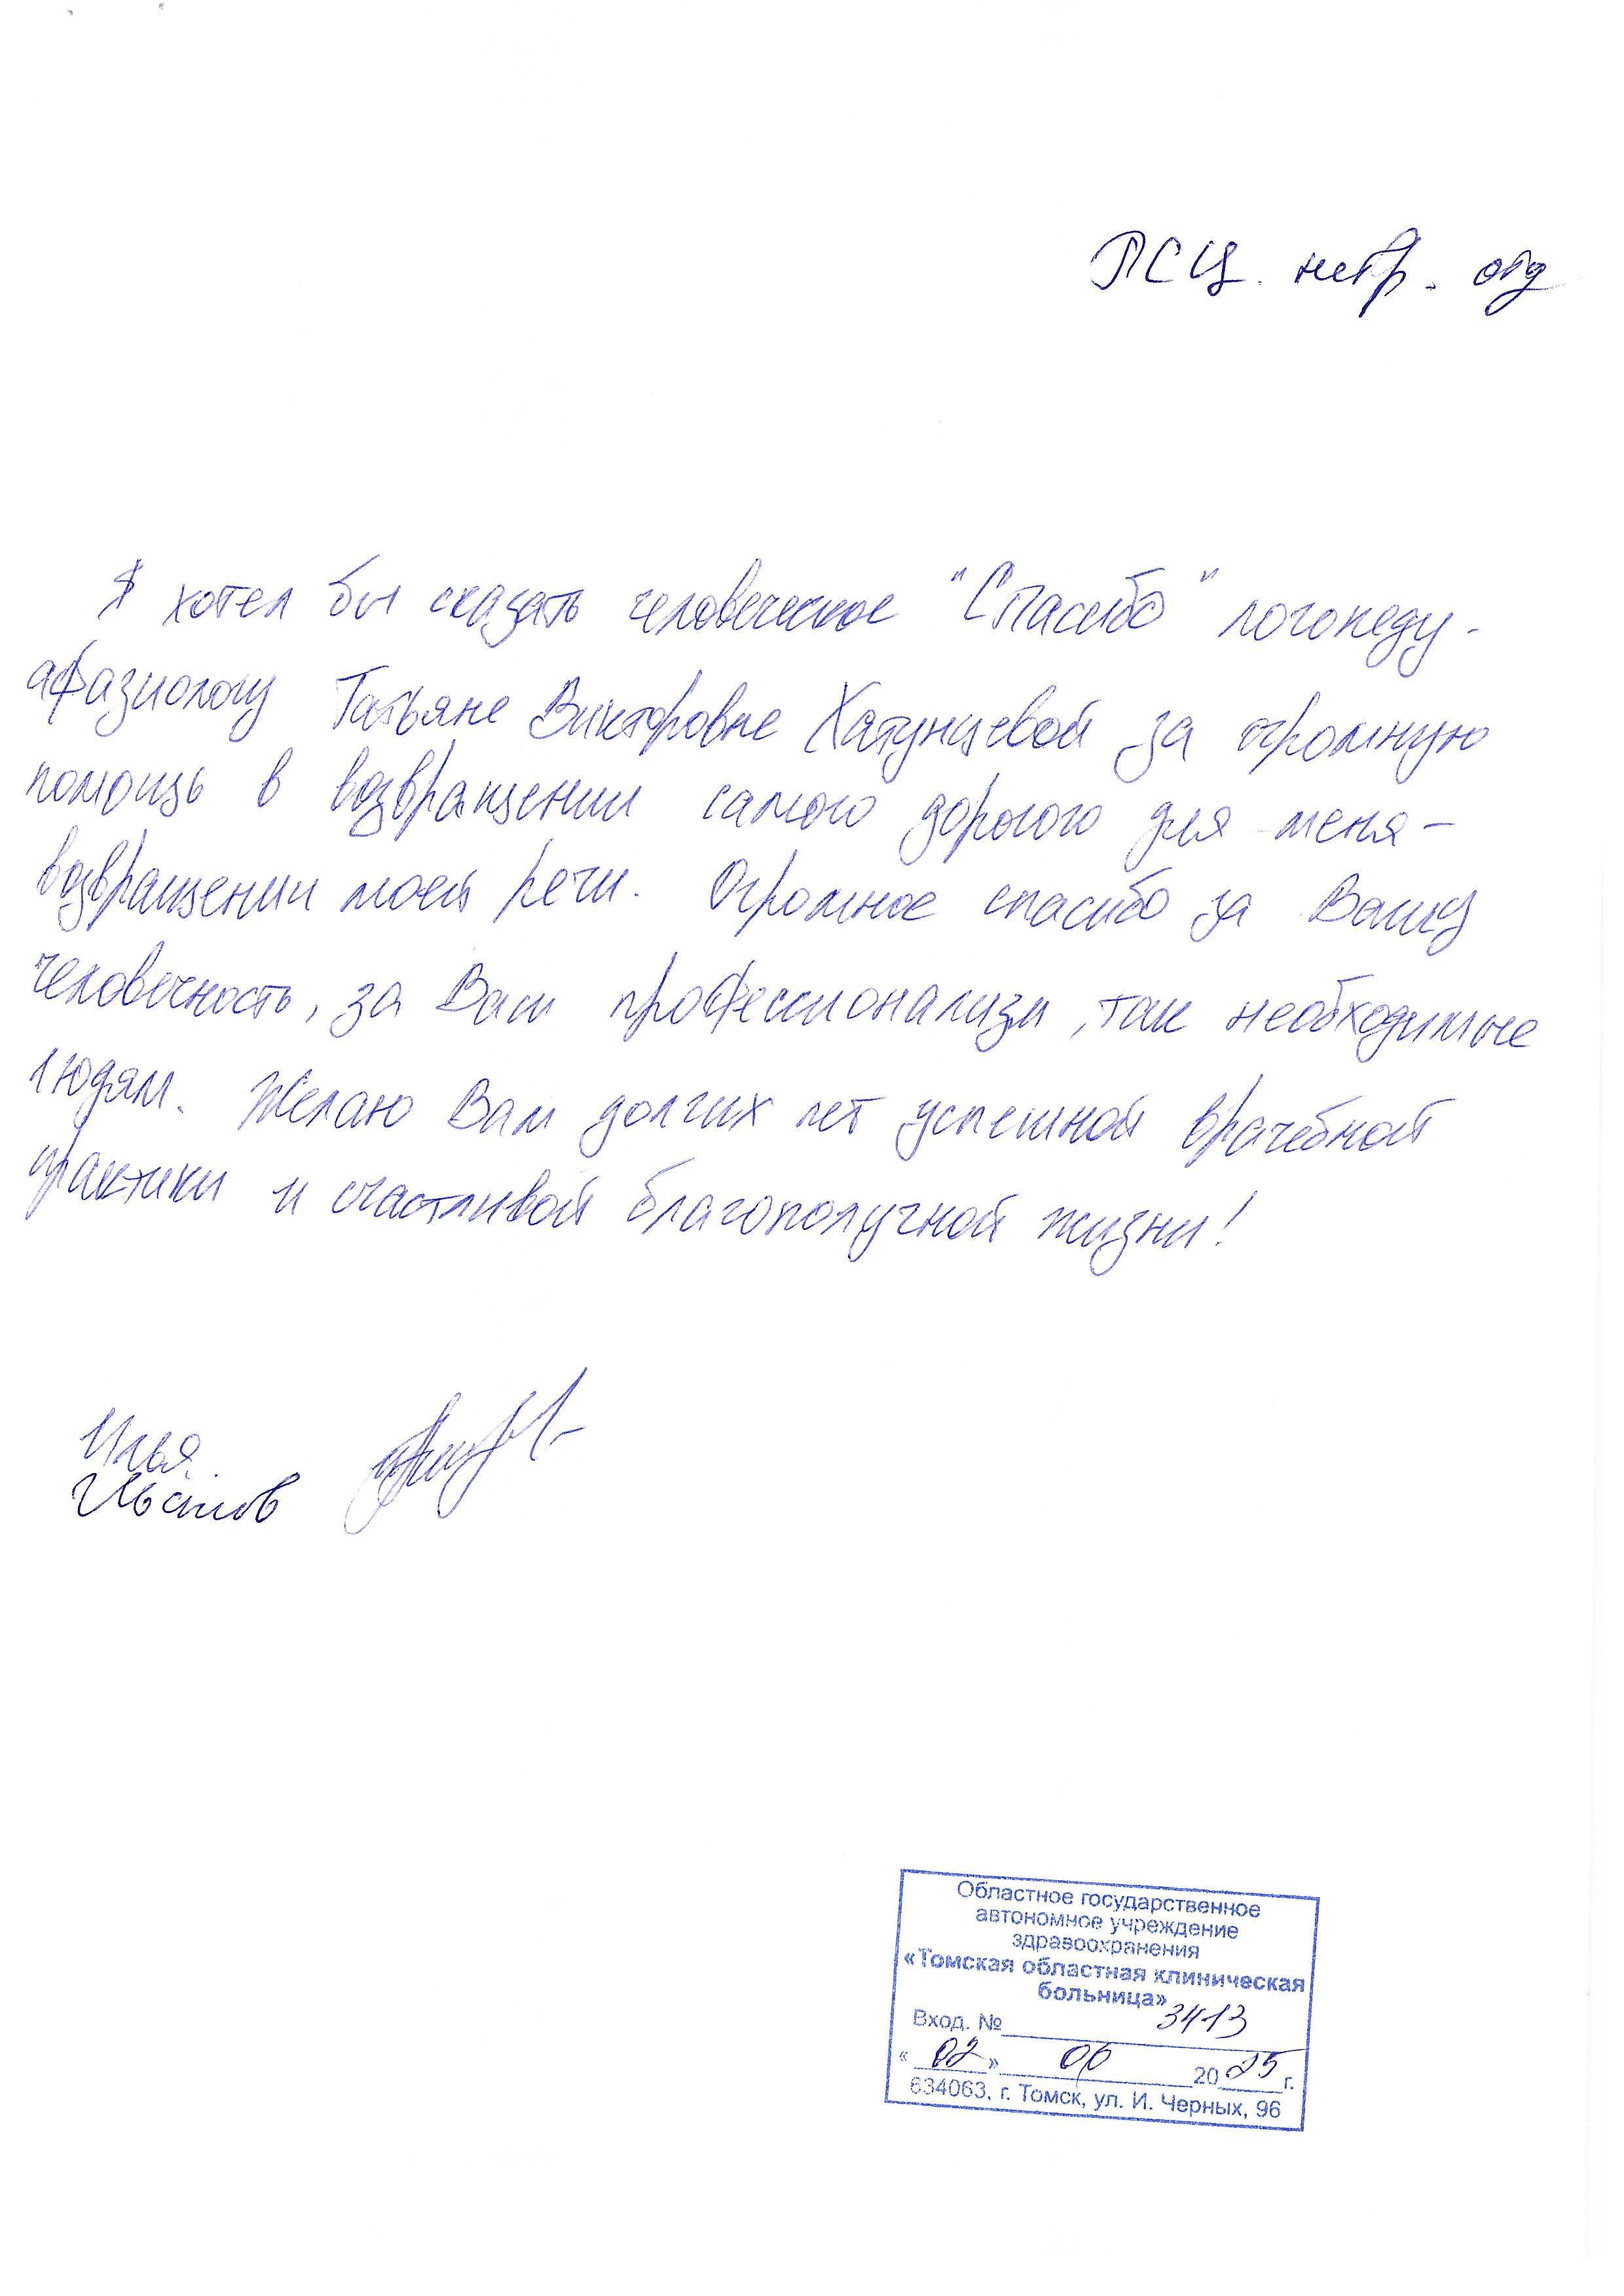 ПСЦ. невр. отд
Я хотел бы сказать человеческое "Спасибо" логопеду-
афазиологу Татьяне Викторовне Хатунцевой за огромную
помощь в возвращении самого дорогого для меня –
возвращении моей речи. Огромное спасибо за Вашу
человечность, за Ваш профессионализм, так необходимые
людям. Желаю Вам долгих лет успешной врачебной
практики и счастливой благополучной жизни!
Илья
Областное государственное
автономное учреждение
здравоохранения
«Томская областная клиническая
больница»
Вход. № 3413
« 02 » 06 2025 г.
634063, г. Томск, ул. И. Черных, 96